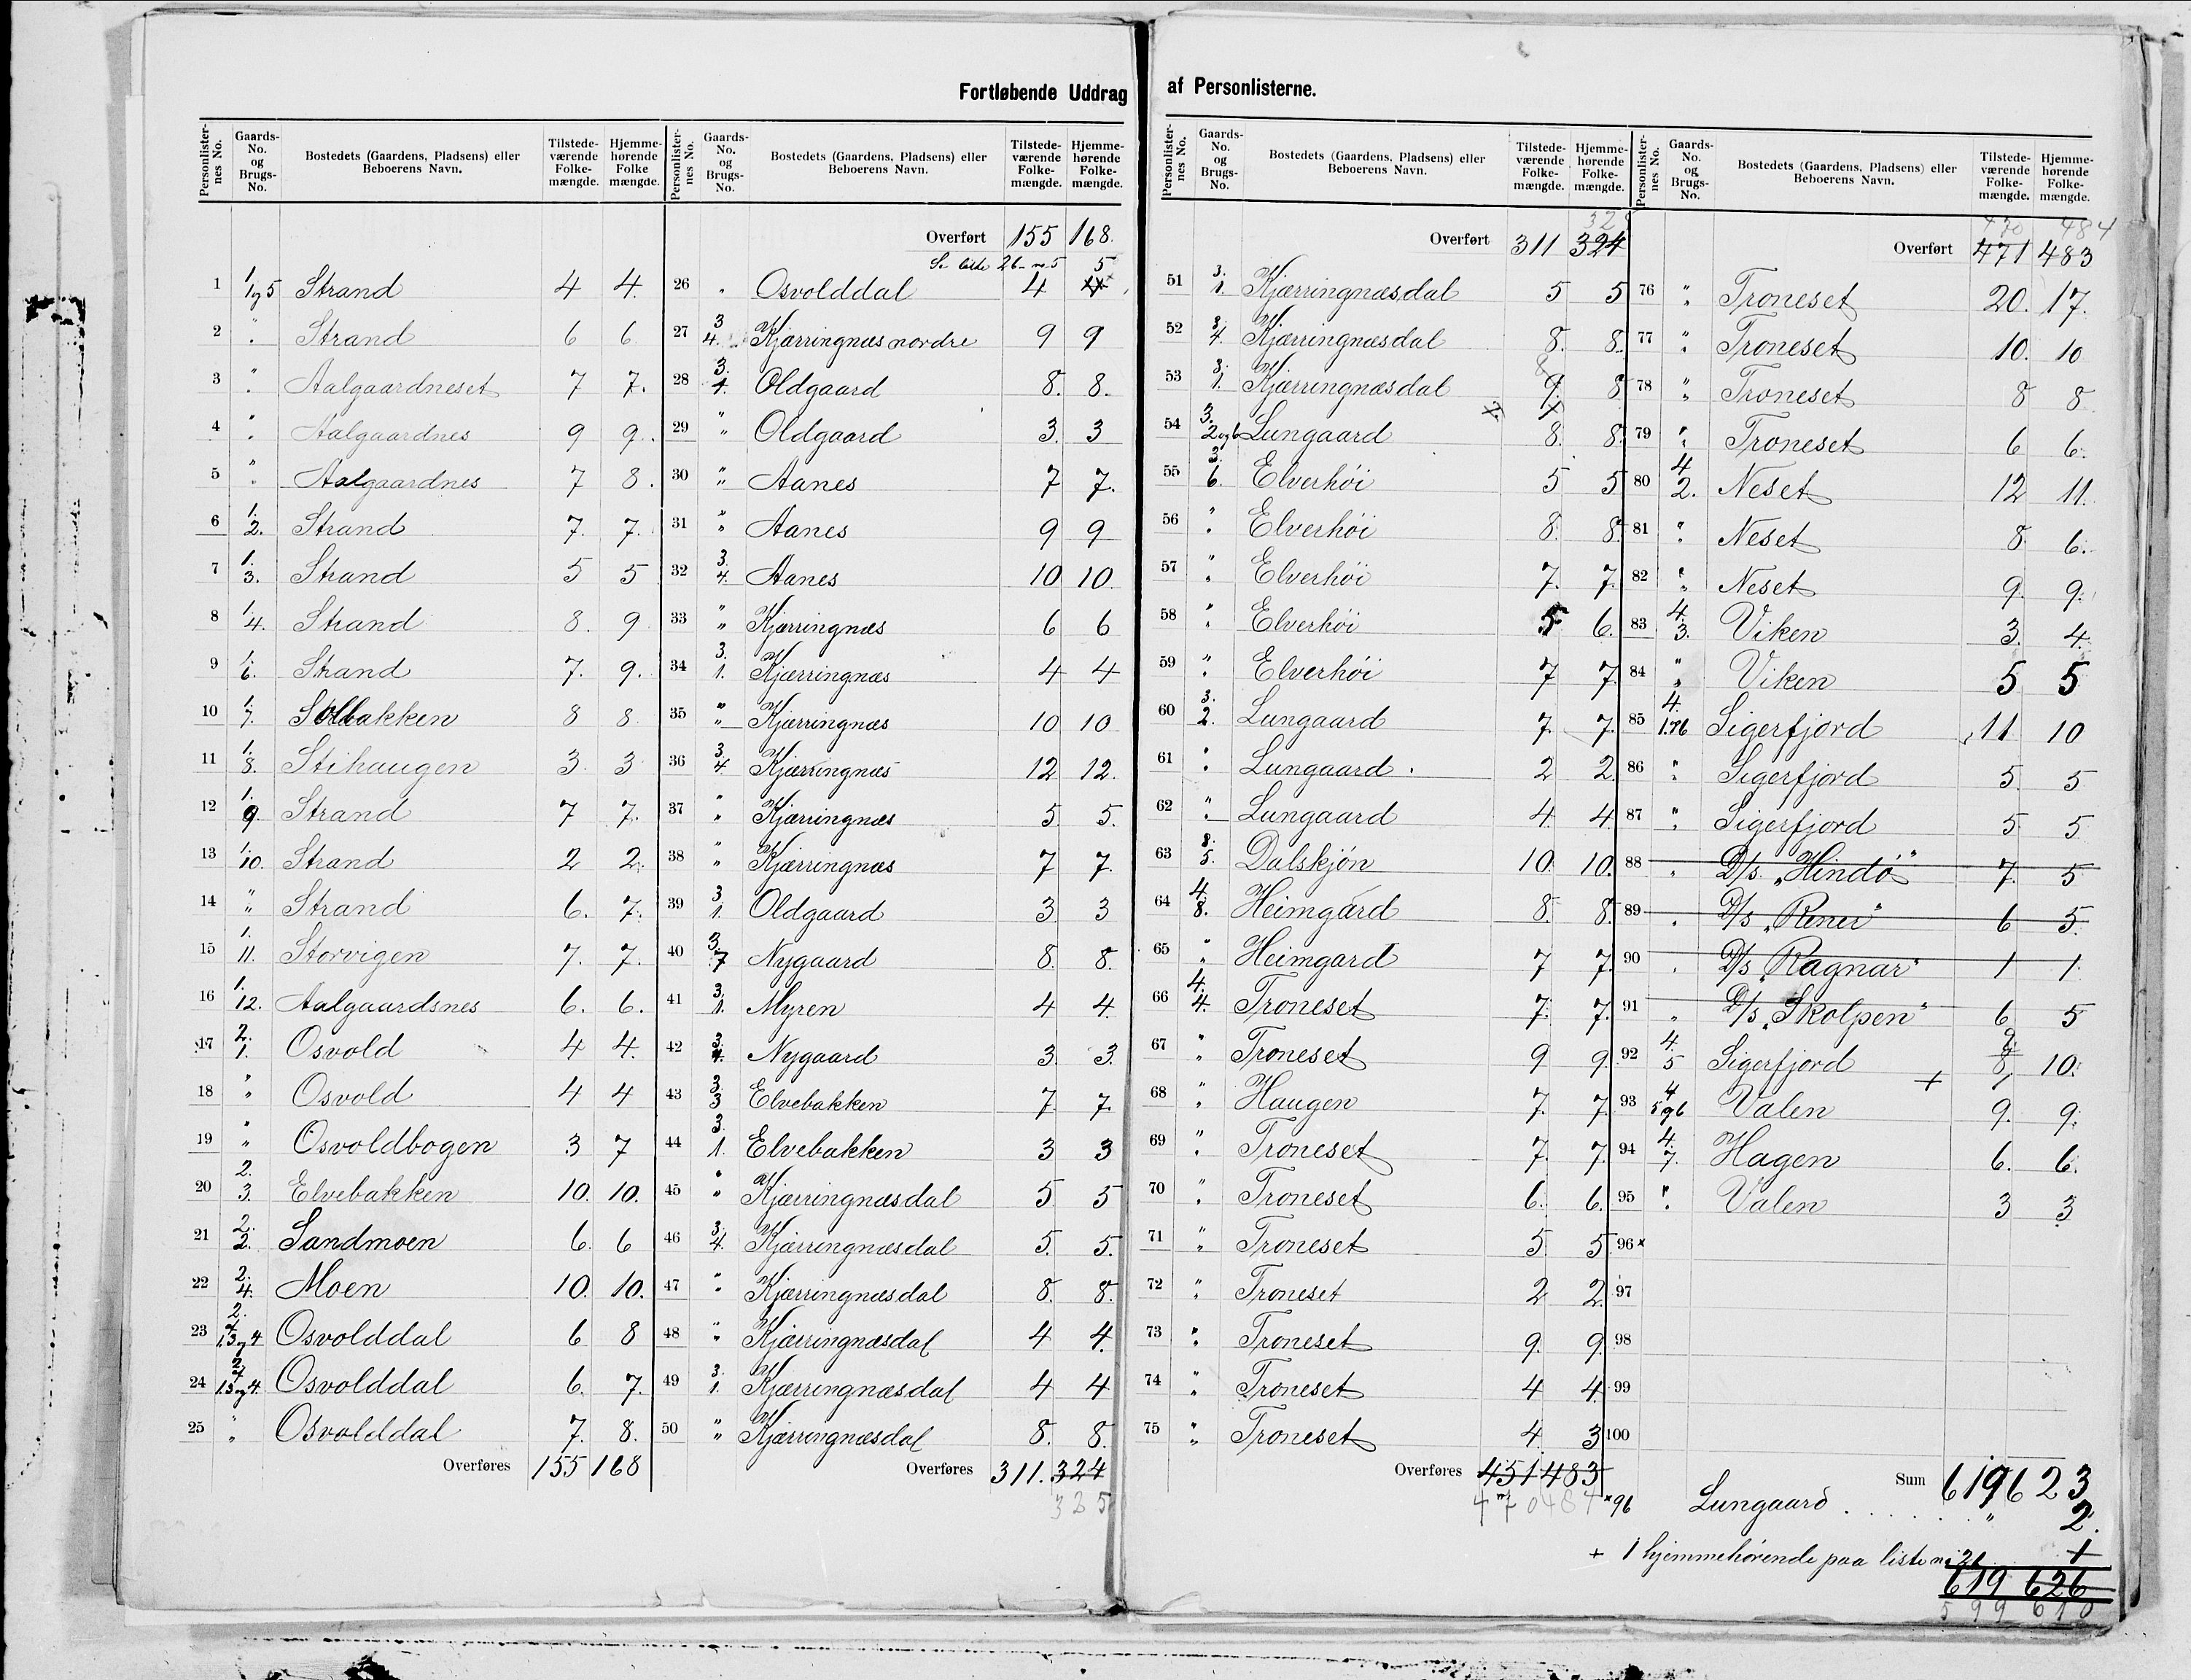 Fortløbende Uddrag af Personlisterne.
Personlisternes No. Gaards-No. og Brugs-No. Bostedets (Gaardens, Pladsens) eller Beboerens Navn. Tilstedeværende Folkemængde. Hjemmehørende Folkemængde.
1 1/1og5 Strand 4 4
2 " Strand 6 6
3 " Aalgaardneset 7 7.
4 " Aalgaardnes 9 9.
5 " Aalgaardnes 7 8.
6 1./2. Strand 7. 7.
7 1./3. Strand 5 5
8 1./4. Strand 8. 9
9 1./6. Strand 7. 9.
10 1./7. Solbakken 8 8
11 1./8. Stihaugen 3. 3
12 1./9. Strand 7 7.
13 1./10. Strand 2 2.
14 " Strand 6. 7.
15 1./11. Storvigen 7. 7.
16 1./12. Aalgaardsnes 6. 6.
17 2./1. Osvold 4 4.
18 " Osvold 4 4
19 " Osvoldbogen 3 7
20 2./3. Elvebakken 10. 10.
21 2./2. Sandmoen 6. 6
22 2./4. Moen 10. 10.
23 2./1.3og4 Osvolddal 6 8
24 2/1.3og4. Osvolddal 6. 7.
25 " Osvolddal 7. 8.
Overføres 155 168
Personlisternes No. Gaards-No. og Brugs-No. Bostedets (Gaardens, Pladsens) eller Beboerens Navn. Tilstedeværende Folkemængde. Hjemmehørende Folkemængde.
Overført 155 168.
Se liste 26 5
26 " Osvolddal 4
27 3/4. Kjærringnæs nordre 9 9
28 3./4. Oldgaard 8. 8.
29 " Oldgaard 3. 3
30 " Aanes 7 7.
31 " Aanes 9 9
32 3./4. Aanes 10 10.
33 " Kjærringnæs 6 6
34 3./1. Kjærringnæs 4 4
35 " Kjærringnæs 10 10
36 3./4. Kjærringnæs 12 12.
37 " Kjærringnæs 5. 5.
38 " Kjærringnæs 7 7.
39 3/1. Oldgaard 3 3
40 3./7 Nygaard 8. 8.
41 3./1. Myren 4 4.
42 3./4. Nygaard 3. 3.
43 3./3 Elvebakken 7. 7.
44 3./1. Elvebakken 3 3
45 " Kjærringnæsdal 5 5
46 3./4. Kjærringnæsdal 5. 5.
47 " Kjærringnæsdal 8. 8.
48 " Kjærringnæsdal 4 4.
49 3./1. Kjærringnæsdal 4 4
50 " Kjærringnæsdal 8. 8.
Overføres 311. 324
325
Personlisternes No. Gaards-No. og Brugs-No. Bostedets (Gaardens, Pladsens) eller Beboerens Navn. Tilstedeværende Folkemængde. Hjemmehørende Folkemængde.
Overført 311 324
51 3./1. Kjærringnæsdal 5 5
52 3/4. Kjærringnæsdal 8. 8.
53 3./1. Kjærringnæsdal 9. 8
54 3./2og6 Lungaard 8. 8.
55 3./6. Elverhöi 5 5
56 " Elverhöi 8. 8.
57 " Elverhöi 7. 7.
58 " Elverhöi 5 6.
59 " Elverhöi 7 7.
60 3./2. Lungaard 7. 7.
61 " Lungaard. 2 2.
62 " Lungaard 4. 4.
63 3./5. Dalskjön 10. 10.
64 4./8. Heimgard 8. 8.
65 " Heimgard 7 7.
66 4./4. Troneset 7. 7.
67 " Troneset 9 9.
68 " Haugen 7. 7.
69 " Troneset 7. 7.
70 " Troneset 6. 6.
71 " Troneset 5 5.
72 " Troneset 2 2.
73 " Troneset 9. 9.
74 " Troneset 4 4.
75 " Troneset 4. 3
Overføres 451 483
470 484
Personlisternes No. Gaards-No. og Brugs-No. Bostedets (Gaardens, Pladsens) eller Beboerens Navn. Tilstedeværende Folkemængde. Hjemmehørende Folkemængde.
470 484
Overført 471 483
76 " Troneset 20. 17.
77 " Troneset 10. 10
78 " Troneset 8 8
79 " Troneset 6 6.
80 4/2. Neset 12 11.
81 " Neset 8. 6.
82 " Neset 9. 9.
83 4./3. Viken 3. 4.
84 " Viken 5 5
85 4. Sigerfjord 11 10
86 " Sigerfjord 5. 5
87 " Sigerfjord 5. 5
88 " D/s. "Hindö" 7. 5
89 " D/s "Rener" 6 5.
90 " D/s "Ragnar" 1 1.
91 " D/s "Skolpen" 6 5
92 4./5 Sigerfjord 8 10.
93 4/5og6 Valen 9. 9.
94 4./7. Hagen 6. 6.
95 " Valen 3 3
96 x
97
98
99
100
Sum 619 623
x 96 Lungaard . . . . . " 2.
+ 1 hjemmehörende paa liste no 26 1
619 626
599 610